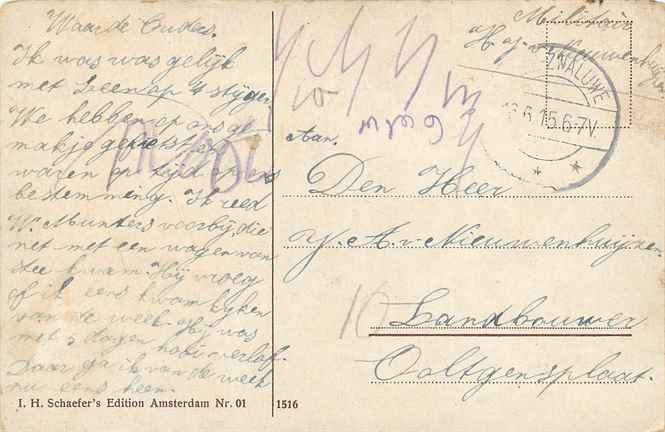 Waarde Ouders.
Ik was was gelijk
met Leen op 4 stygen
We hebben op
makje gefietst en
waren op tijd op ons
bestemming. Ik reed
W. Munters voorbij, die
net met een wagen van
stee kwam. Hij vroeg
of ik eens kwam kijken
van de week. Hij was
met 2 dagen hooi verlof.
Daar ga ik van de week
nu eens heen.
Militair
H. J. v. Nieuwenhuijzen
ZWALUWE
6.15.6-7V.
Aan.
Den Heer
A. v. Nieuwenhuijzen
10
Landbouwer
Ooltgensplaat.
I. H. Schaefer's Edition Amsterdam Nr. 01
1516